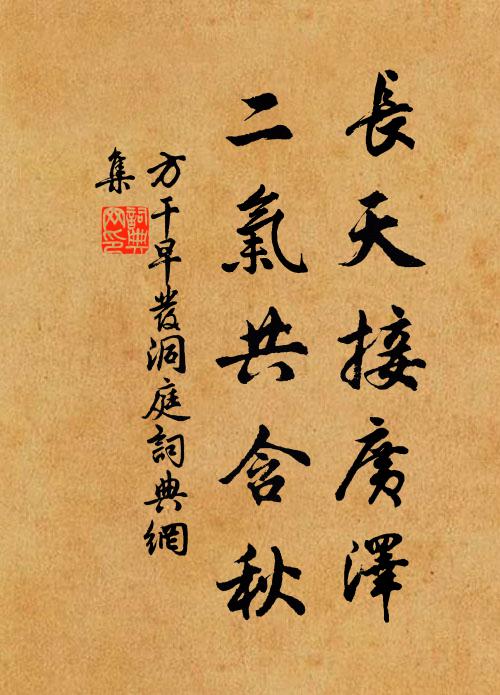 長天接廣澤
二氣共含秋
方干早發洞庭詞典網
集
詞典網印